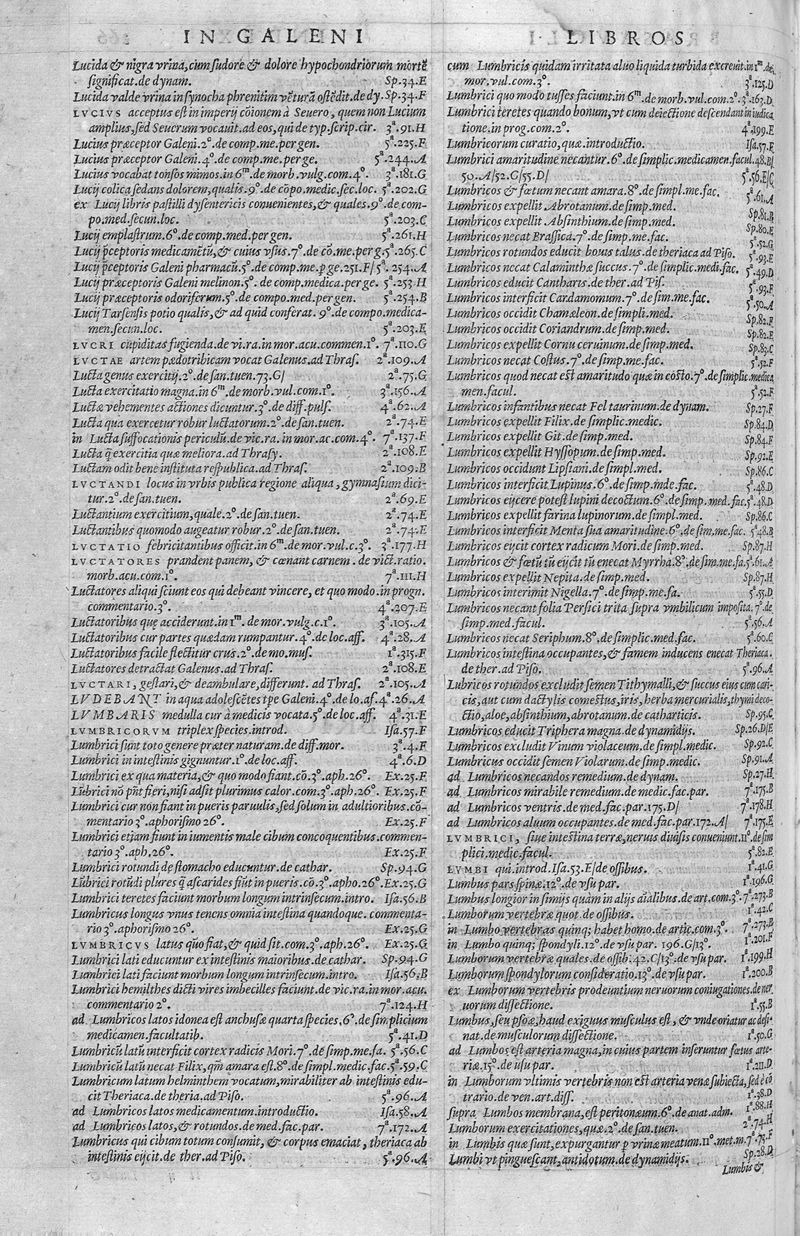 IN GALENI
Lucida & nigra vrina, cum sudore & dolore hypochondriorum mortē
significat. de dynam. Sp.34.E
Lucida valde vrina in synocha phrenitim vēturā ostēdit. de dy. Sp.34.F
LVCIVS acceptus est in imperij cōionem à Seuero, quem non Lucium
amplius, sed Seucrum vocauit. ad eos, qui de typ. scrip. cir. 3ª.91.H
Lucius præceptor Galeni. 2º. de comp. me. per gen. 5ª.225.F
Lucius præceptor Galeni. 4º. de comp. me. per ge. 5ª.244.A
Lucius vocabat tonsos mimos. in 6ᵐ. de morb. vulg. com. 4º. 3ª.181.G
Lucij colica sedans dolorem, qualis. 9º. de cōpo. medic. sec. loc. 5ª.202.G
ex Lucij libris pastilli dysentericis conuenientes, & quales. 9º. de com-
po. med. secun. loc. 5ª.203.C
Lucij emplastrum. 6º. de comp. med. per gen. 5ª.261.H
Lucij pceptoris medicamētū, & cuius vsus. 7º. de cō. me. per g. 5ª.265.C
Lucij pceptoris Galeni pharmacū. 5º. de comp. me. p ge. 251.F/ 5ª.254.A
Lucij præceptoris Galeni melinon. 5º. de comp. medica. per ge. 5ª.253.H
Lucij præceptoris odoriferum. 5º. de compo. med. per gen. 5ª.254.B
Lucij Tarsensis potio qualis, & ad quid conferat. 9º. de compo. medica-
men. secun. loc. 5ª.203.E
LVCRI cupiditas fugienda. de vi. ra. in mor. acu. commen. 1º. 7ª.110.G
LVCTAE artem pædotribicam vocat Galenus. ad Thras. 2ª.109.A
Lucta genus exercitij. 2º. de san. tuen. 73.G/ 2ª.75.G
Lucta exercitatio magna. in 6ᵐ. de morb. vul. com. 1º. 3ª.156.A
Luctæ vehementes actiones dicuntur. 3º. de diff. puls. 4ª.62.A
Lucta qua exercetur robur luctatorum. 2º. de san. tuen. 2ª.74.E
in Lucta suffocationis periculū. de vic. ra. in mor. ac. com. 4º. 7ª.137.F
Lucta q̄ exercitia quæ meliora. ad Thrasy. 2ª.108.E
Luctam odit bene instituta respublica. ad Thras. 2ª.109.B
LVCTANDI locus in vrbis publica regione aliqua, gymnasium dici-
tur. 2º. de san. tuen. 2ª.69.E
Luctantium exercitium, quale. 2º. de san. tuen. 2ª.74.E
Luctantibus quomodo augeatur robur. 2º. de san. tuen. 2ª.74.E
LVCTATIO febricitantibus officit. in 6ᵐ. de mor. vul. c. 3º. 3ª.177.H
LVCTATORES prandent panem, & cœnant carnem. de vict. ratio.
morb. acu. com. 1º. 7ª.111.H
Luctatores aliqui sciunt eos qui debeant vincere, et quo modo. in progn.
commentario. 3º. 4ª.207.E
Luctatoribus que acciderunt. in 1ᵐ. de mor. vulg. c. 1º. 3ª.105.A
Luctatoribus cur partes quædam rumpantur. 4º. de loc. aff. 4ª.28.A
Luctatoribus facile flectitur crus. 2º. de mo. mus. 1ª.315.F
Luctatores detractat Galenus. ad Thras. 2ª.108.E
LVCTARI, gestari, & deambulare, differunt. ad Thras. 2ª.105.A
LVDEBANT in aqua adolescētes tpe Galeni. 4º. de lo. af. 4ª.26.A
LVMBARIS medulla cur à medicis vocata. 5º. de loc. aff. 4ª.31.E
LVMBRICORVM triplex species. introd. Isa.57.F
Lumbrici sunt toto genere præter naturam. de diff. mor. 3ª.4.F
Lumbrici in intestinis gignuntur. 1º. de loc. aff. 4ª.6.D
Lumbrici ex qua materia, & quo modo fiant. cō. 3º. aph. 26º. Ex.25.F
Lūbrici nō pñt fieri, nisi adsit plurimus calor. com. 3º. aph. 26º. Ex.25.F
Lumbrici cur non fiant in pueris paruulis, sed solum in adultioribus. cō-
mentario 3º. aphorismo 26º. Ex.25.F
Lumbrici etiam fiunt in iumentis male cibum concoquentibus. commen-
tario 3º. aph. 26º. Ex.25.F
Lumbrici rotundi de stomacho educuntur. de cathar. Sp.94.G
Lūbrici rotūdi plures q̄ ascarides fiūt in pueris. cō. 3º. apho. 26º. Ex.25.G
Lumbrici teretes faciunt morbum longum intrinsecum. intro. Isa.56.B
Lumbricus longus vnus tenens omnia intestina quandoque. commenta-
rio 3º. aphorismo 26º. Ex.25.G
LVMBRICVS latus quo fiat, & quid sit. com. 3º. aph. 26º. Ex.25.G
Lumbrici lati educuntur ex intestinis maioribus. de cathar. Sp.94.G
Lumbrici lati faciunt morbum longum intrinsecum. intro. Isa.56.B
Lumbrici hemilthes dicti vires imbecilles faciunt. de vic. ra. in mor. acu.
commentario 2º. 7ª.124.H
ad Lumbricos latos idonea est anchusæ quarta species. 6º. de simplicium
medicamen. facultatib. 5ª.41.D
Lumbricū latū interficit cortex radicis Mori. 7º. de simp. me. fa. 5ª.56.C
Lumbricū latū necat Filix, qm̄ amara est. 8º. de simpl. medic. fac. 5ª.59.C
Lumbricum latum helminthem vocatum, mirabiliter ab intestinis edu-
cit Theriaca. de theria. ad Piso. 5ª.96.A
ad Lumbricos latos medicamentum. introductio. Isa.58.A
ad Lumbricos latos, & rotundos. de med. fac. par. 7ª.172.A
Lumbricus qui cibum totum consumit, & corpus emaciat, theriaca ab
intestinis eijcit. de ther. ad Piso. 5ª.96.A
LIBROS
cum Lumbricis quidam irritata aluo liquida turbida excreuit. in 1ᵐ. de
mor. vul. com. 3º. 3ª.125.D
Lumbrici quo modo tusses faciunt. in 6ᵐ. de morb. vul. com. 2º. 3ª.163.D
Lumbrici teretes quando bonum, vt cum deiectione descendant. in iudica
tione. in prog. com. 2º. 4ª.199.E
Lumbricorum curatio, quæ. introductio. Isa.57.F
Lumbrici amaritudine necantur. 6º. de simplic. medicamen. facul. 48.B/
50.A/52.G/55.D/ 5ª.56.E/C
Lumbricos & fœtum necant amara. 8º. de simpl. me. fac. 5ª.61.A
Lumbricos expellit Abrotanum. de simp. med. Sp.81.B
Lumbricos expellit Absinthium. de simp. med. Sp.80.E
Lumbricos necat Brassica. 7º. de simp. me. fac. 5ª.52.G
Lumbricos rotundos educit bonus talus. de theriaca ad Piso. 5ª.93.E
Lumbricos necat Calaminthæ succus. 7º. de simplic. medi. fac. 5ª.49.D
Lumbricos educit Cantharis. de ther. ad Pis. 5ª.93.F
Lumbricos interficit Cardamomum. 7º. de sim. me. fac. 5ª.50.A
Lumbricos occidit Chamæleon. de simpli. med. Sp.82.F
Lumbricos occidit Coriandrum. de simp. med. Sp.82.E
Lumbricos expellit Cornu ceruinum. de simp. med. Sp.83.C
Lumbricos necat Costus. 7º. de simp. me. fac. 5ª.52.F
Lumbricos quod necat est amaritudo quæ in costo. 7º. de simplic. medica
men. facul. 5ª.52.F
Lumbricos infantibus necat Fel taurinum. de dynam. Sp.27.F
Lumbricos expellit Filix. de simplic. medic. Sp.84.D
Lumbricos expellit Git. de simp. med. Sp.84.F
Lumbricos expellit Hyssopum. de simp. med. Sp.92.E
Lumbricos occidunt Lipsiani. de simpl. med. Sp.86.C
Lumbricos interficit Lupinus. 6º. de simp. mde. fac. 5ª.48.D
Lumbricos eijcere potest lupini decoctum. 6º. de simp. med. fac. 5ª.48.D
Lumbricos expellit farina lupinorum. de simpl. med. Sp.86.C
Lumbricos interficit Menta sua amaritudine. 6º. de sim. me. fac. 5ª.48.B
Lumbricos eijcit cortex radicum Mori. de simp. med. Sp.87.H
Lumbricos & fœtū tū eijcit tū enecat Myrrha. 8º. de sim. me. fa. 5ª.61.A
Lumbricos expellit Nepita. de simp. med. Sp.87.H
Lumbricos interimit Nigella. 7º. de simp. me. fa. 5ª.55.D
Lumbricos necant folia Persici trita supra vmbilicum imposita. 7º. de
simp. med. facul. 5ª.56.A
Lumbricos necat Seriphum. 8º. de simplic. med. fac. 5ª.60.C
Lumbricos intestina occupantes, & famem inducens enecat Theriaca.
de ther. ad Piso. 5ª.96.A
Lubricos rotundos excludit semen Tithymalli, & succus eius cum cari-
cis, aut cum dactylis comestus, iris, herba mercurialis, thymi deco-
ctio, aloe, absinthium, abrotanum. de catharticis. Sp.95.C
Lumbricos educit Triphera magna. de dynamidijs. Sp.26.D/E
Lumbricos excludit Vinum violaceum. de simpl. medic. Sp.92.C
Lumbricus occidit semen Violarum. de simp. med. Sp.91.A
ad Lumbricos necandos remedium. de dynam. Sp.27.H
ad Lumbricos mirabile remedium. de med. fac. par. 7ª.175.B
ad Lumbricos ventris. de med. fac. par. 175.D/ 7ª.178.H
ad Lumbricos aluum occupantes. de med. fac. par. 172.A/ 7ª.175.E
LVMBRICI, siue intestina terræ, neruis diuisis conueniunt. 11º. de sim
plici. medic. facul. 5ª.82.E
LVMBI qui. introd. Isa.53.E/de ossibus. 1ª.41.G
Lumbus pars spinæ. 12º. de vsu par. 1ª.196.G
Lumbus longior in simijs quàm in alijs aīalibus. de art. com. 3º. 7ª.273.D
Lumborum vertebræ quot. de ossibus. 1ª.42.C
in Lumbo vertebras quinq; habet homo. de artic. com. 3º. 7ª.273.B
in Lumbo quinq; spondyli. 12º. de vsu par. 196.G/13º. 1ª.201.F
Lumborum vertebræ quales. de ossib. 42.C/13º. de vsu par. 1ª.199.H
Lumborum spondylorum consideratio. 13º. de vsu par. 1ª.200.B
ex Lumborum vertebris prodeuntium neruorum coniugationes. de ner
uorum dissectione. 1ª.55.B
Lumbus, seu psoæ, haud exiguus musculus est, & vnde oriatur ac desi-
nat. de musculorum dissectione. 1ª.50.G
ad Lumbos est arteria magna, in cuius partem inseruntur fœtus arte-
riæ. 15º. de vsu par. 1ª.211.D
in Lumborum vltimis vertebris non est arteria venæ subiecta, sed è cō
trario. de ven. art. diss. 1ª.38.D
supra Lumbos membrana, est peritonæum. 6º. de anat. adm. 1ª.88.H
Lumborum exercitationes, quæ. 2º. de san. tuen. 2ª.74.H
in Lumbis quæ sunt, expurgantur p vrinæ meatum. 11º. met. m. 7ª.75.F
Lumbi vt pinguescant, antidotum. de dynamidijs. Sp.28.D
Lumbis &